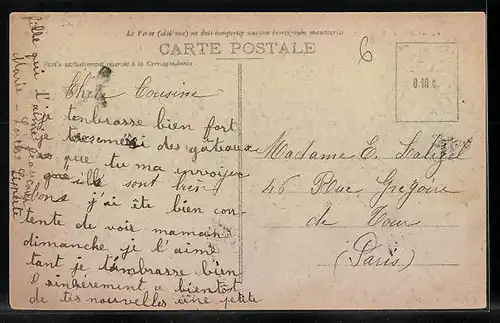 Le Verso (côté vue) ne doit comporter aucune inscription manuscrite
CARTE POSTALE
Partie exclusivement réservée à la Correspondance
6
0.10 c.
Chère Cousine
je tenbrasse bien fort
je te remersi des gâteaux
que tu ma envoyer
ille sont bien
bons j'ai ête bien con-
tente de voir maman
dimanche je l'aime
tant je tembrasse bien
sinserement a bientôt
de tes nouvelles une petite
fille qui t'aime beaucoup
Marie
Madame E.
46 Rue Gregoire
de Tour
(Paris)